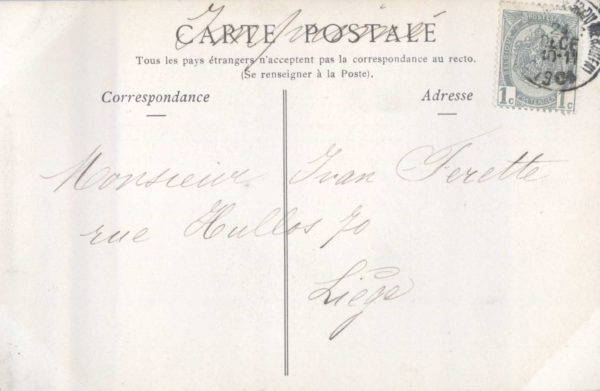 Imprimé
CARTE POSTALE
Tous les pays étrangers n'acceptent pas la correspondance au recto.
(Se renseigner à la Poste).
Correspondance
Adresse
1c 1c
Monsieur Ivan Ferette
rue Hullos 70
Liège